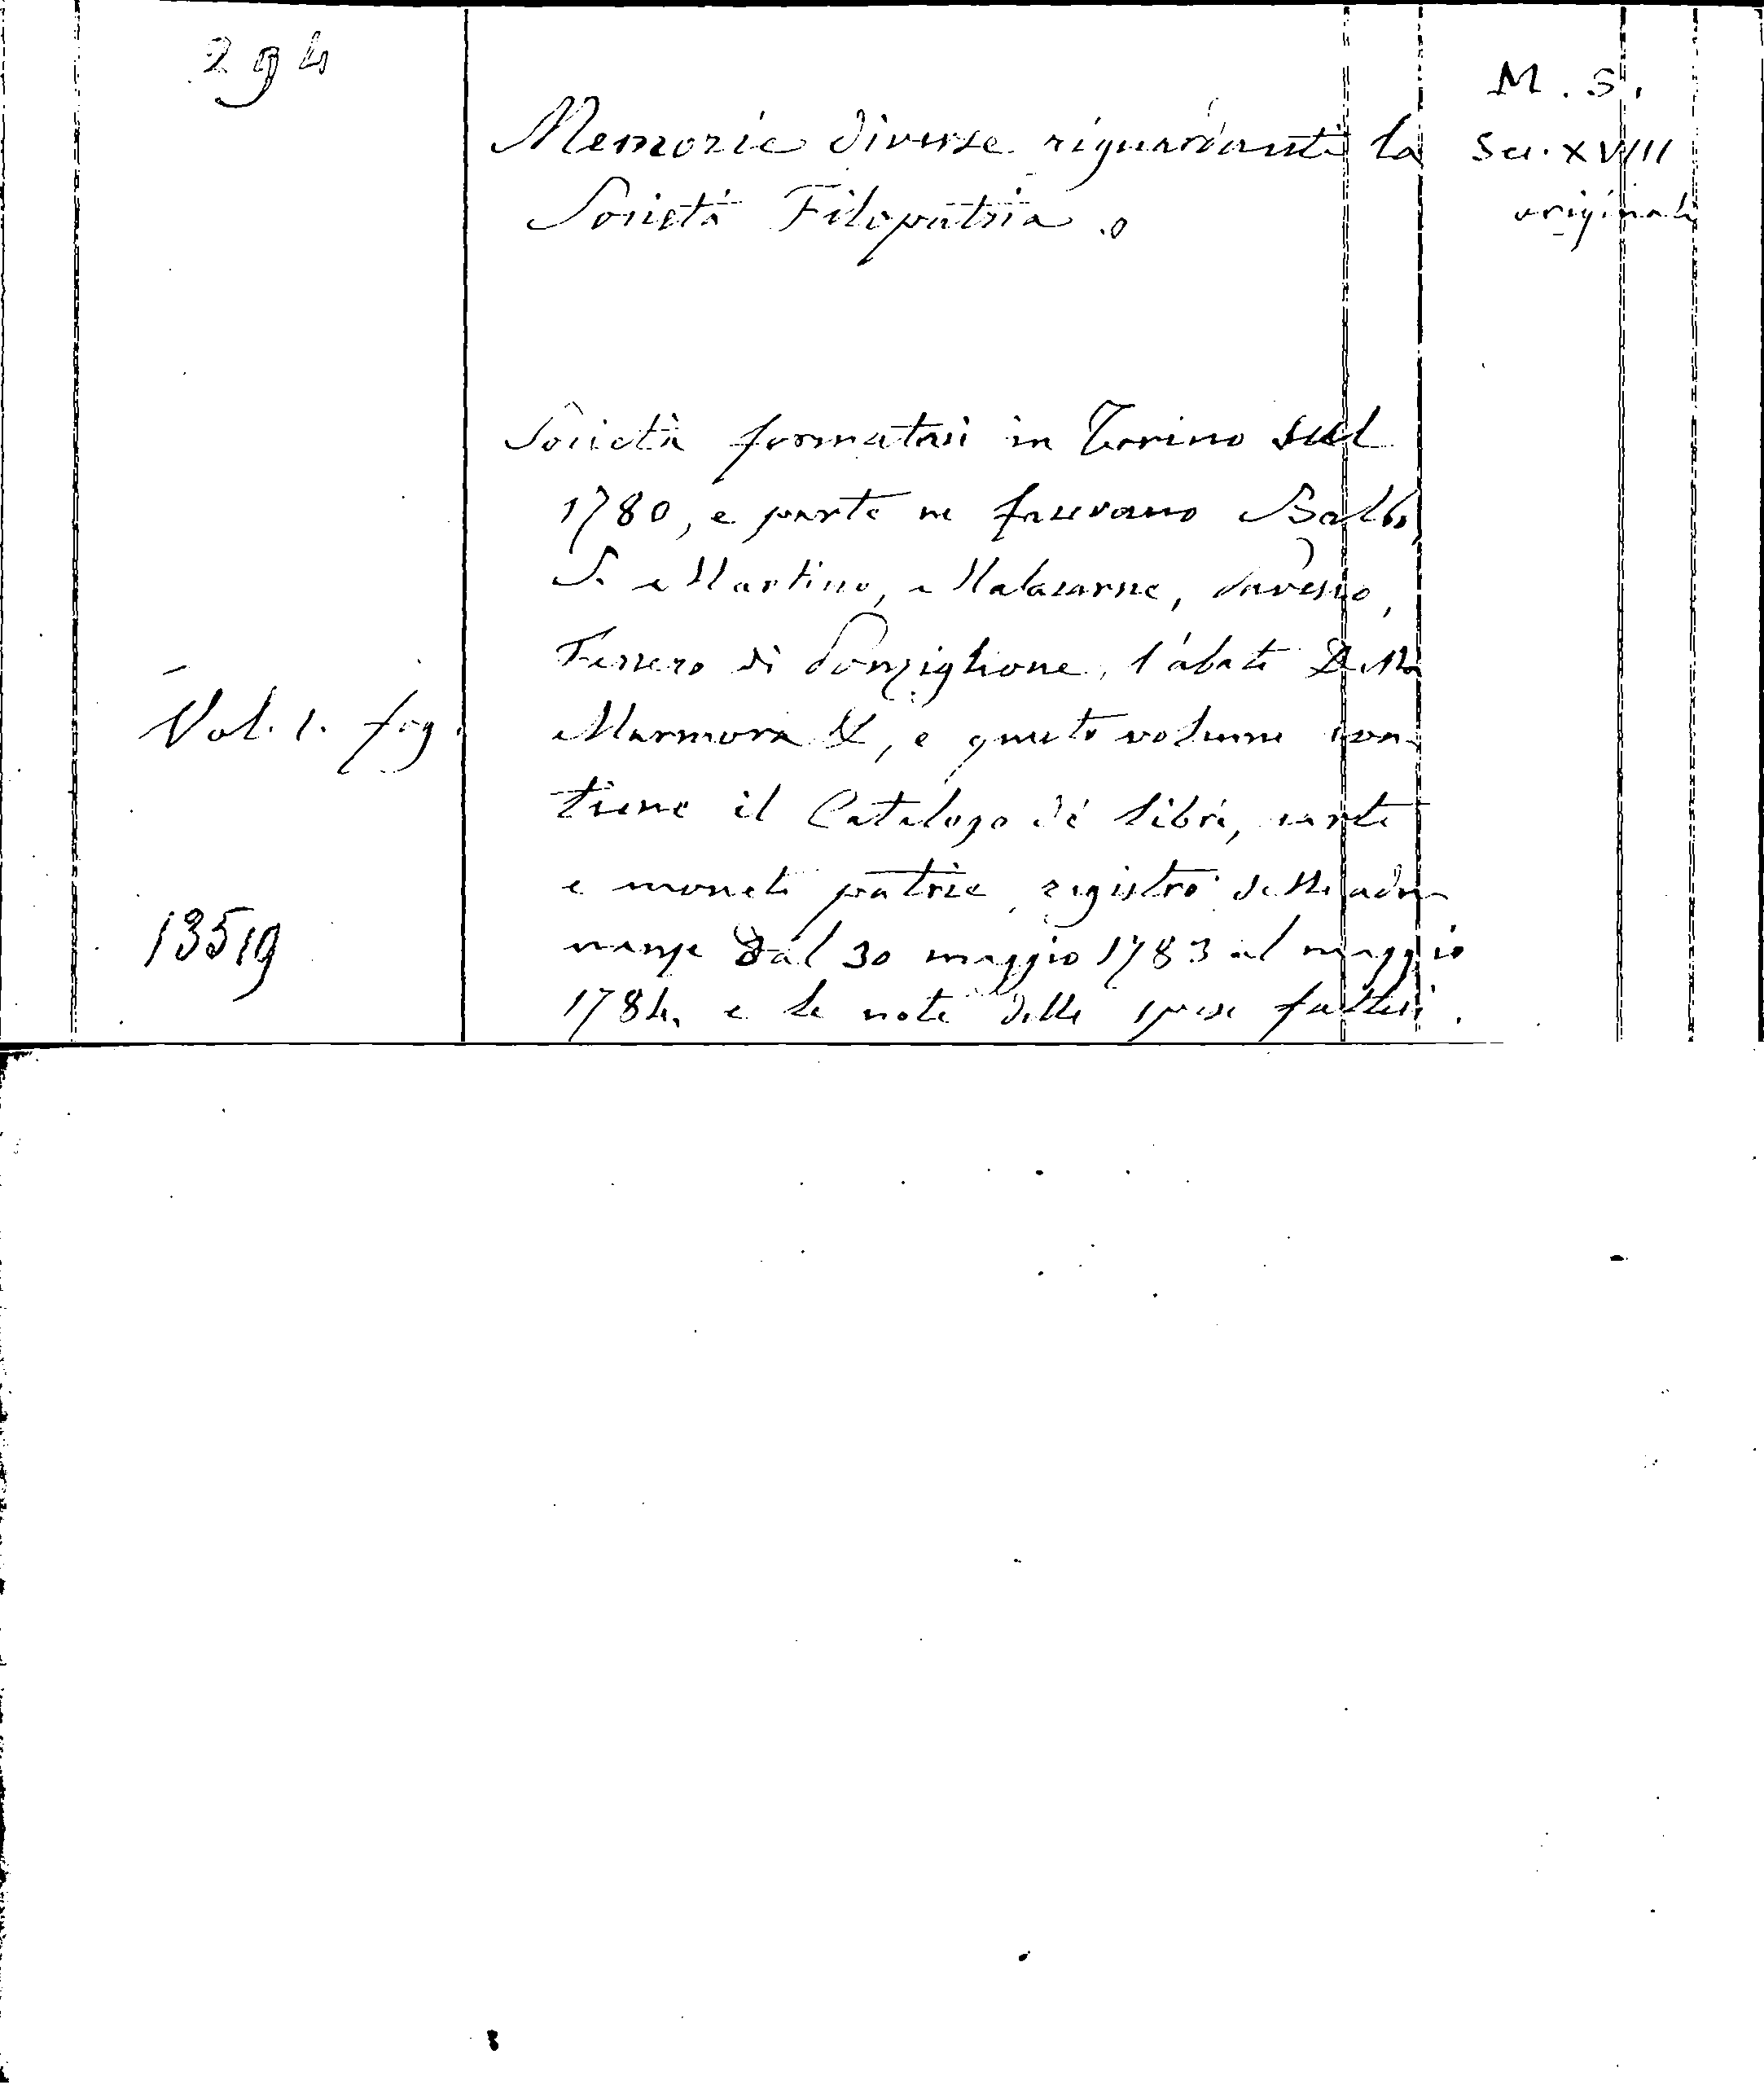 294
M. S.
Sec. XVIII
originale
Memorie diverse riguardanti la
Società Filopatria.
Società formatasi in Torino sul
1780, e parte ne facevano Balbo,
S. Martino, Malacarne,
di Ponziglione, l'abate Della
Vol. 1. fog.
Marmora &, e questo volume con-
tiene il Catalogo di libri, carte
e monete patrie, registro delle adu-
13519
nanze dal 30 maggio 1783 al maggio
1784. e le note delle spese fattesi.